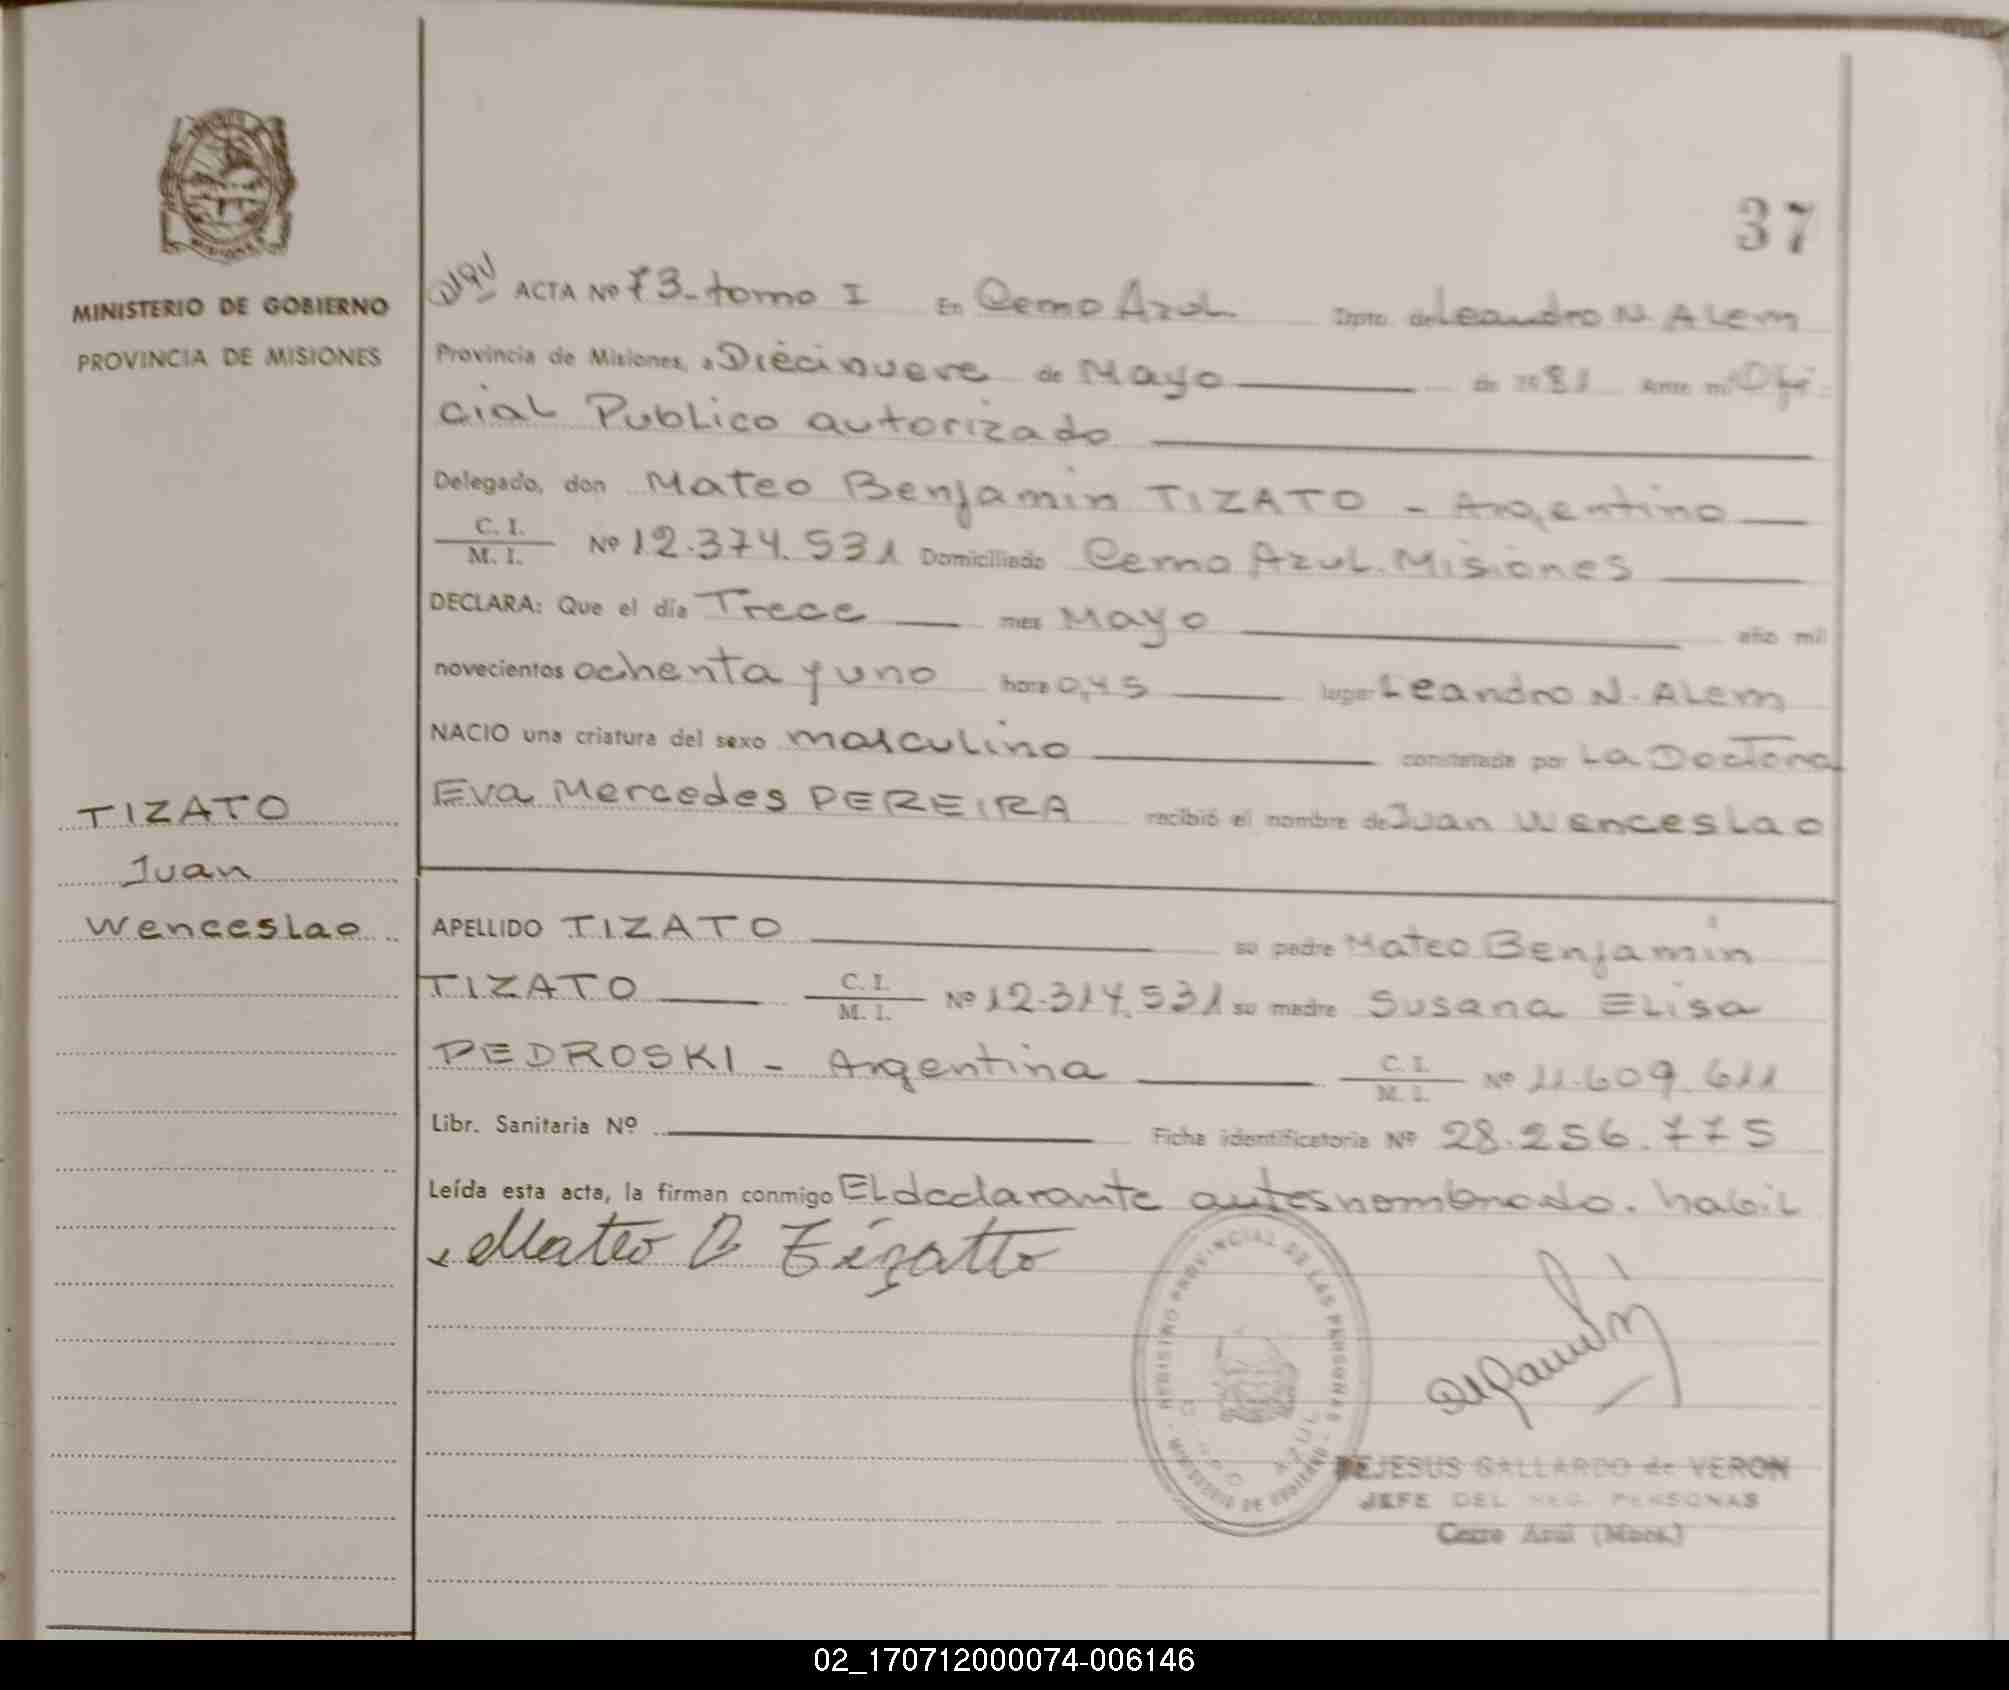 37
MINISTERIO DE GOBIERNO
PROVINCIA DE MISIONES
ACTA Nº 73-tomo I En Cerro Azul Dpto. de Leandro N. ALem
Provincia de Misiones, a Diecinueve de Mayo de 1981 Ante mí Ofi
cial Publico autorizado
Delegado, don Mateo Benjamin TIZATO - Argentino
C. I.
M. I. Nº 12.374.531 Domiciliado Cerro Azul. Misiones
DECLARA: Que el día Trece mes Mayo año mil
novecientos ochenta y uno hora 0,45 lugar Leandro N. ALem
NACIO una criatura del sexo masculino constatada por La Doctora
Eva Mercedes PEREIRA recibió el nombre de Juan Wenceslao
TIZATO
Juan
Wenceslao
APELLIDO TIZATO su padre Mateo Benjamin
TIZATO C. I.
M. I. Nº 12.314.531 su madre Susana Elisa
PEDROSKI - Argentina C. I.
M. I. Nº 11.609.611
Libr. Sanitaria Nº Ficha identificatoria Nº 28.256.775
Leída esta acta, la firman conmigo El declarante antesnombrado. habil
Mateo B Tizatto
REGISTRO PROVINCIAL DE LAS PERSONAS
MINISTERIO DE GOBIERNO
DEJESUS GALLARDO de VERON
JEFE DEL REG. PERSONAS
Cerro Azul (Mnes.)
02_170712000074-006146